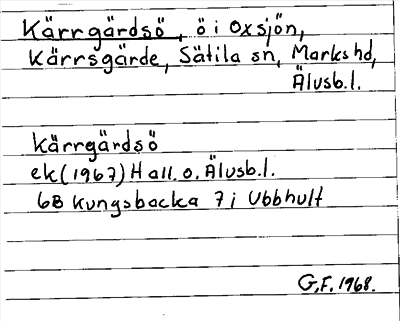 Kärrgärdsö, ö i Oxsjön,
Kärrsgärde, Sätila sn, Marks hd,
Älvsb.l.
Kärrgärdsö
ek (1967) Hall. o. Älvsb.l.
6B Kungsbacka 7 i Ubbhult
G.F. 1968.